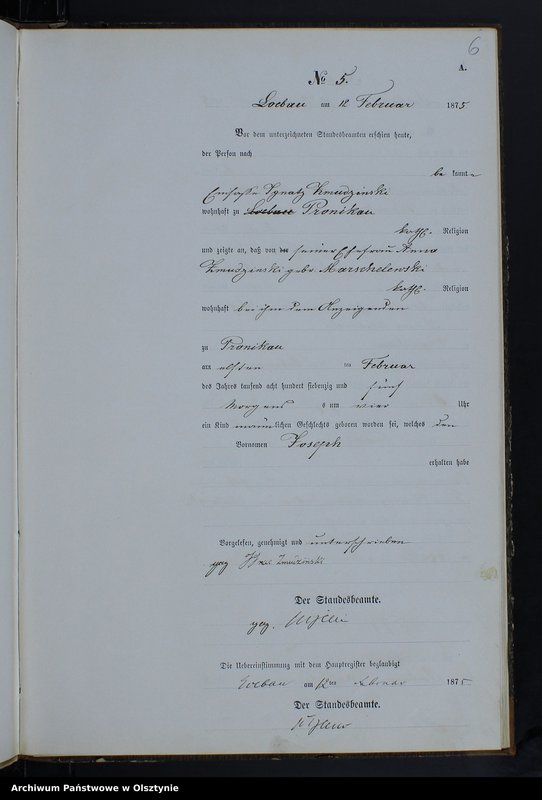 6
A.
No 5.
Loebau am 12 Februar 1875
Vor dem unterzeichneten Standesbeamten erschien heute,
der Person nach
be kannt
Ignatz Zmudzinski
wohnhaft zu Loebau Pronikau
kath. Religion
und zeigte an, daß von der seiner Ehefrau Anna
Zmudzinski gebr Marschelewski
kath. Religion
wohnhaft bei ihm dem Anzeigenden
zu Pronikau
am elften ten Februar
des Jahres tausend acht hundert siebenzig und fünf
Morgens um vier Uhr
ein Kind männlichen Geschlechts geboren worden sei, welches den
Vornamen Joseph
erhalten habe
Vorgelesen, genehmigt und unterschrieben
gez Zmudzinski
Der Standesbeamte.
gez.
Die Uebereinstimmung mit dem Hauptregister beglaubigt
Loebau am 12ten Februar 1875
Der Standesbeamte.
Archiwum Państwowe w Olsztynie